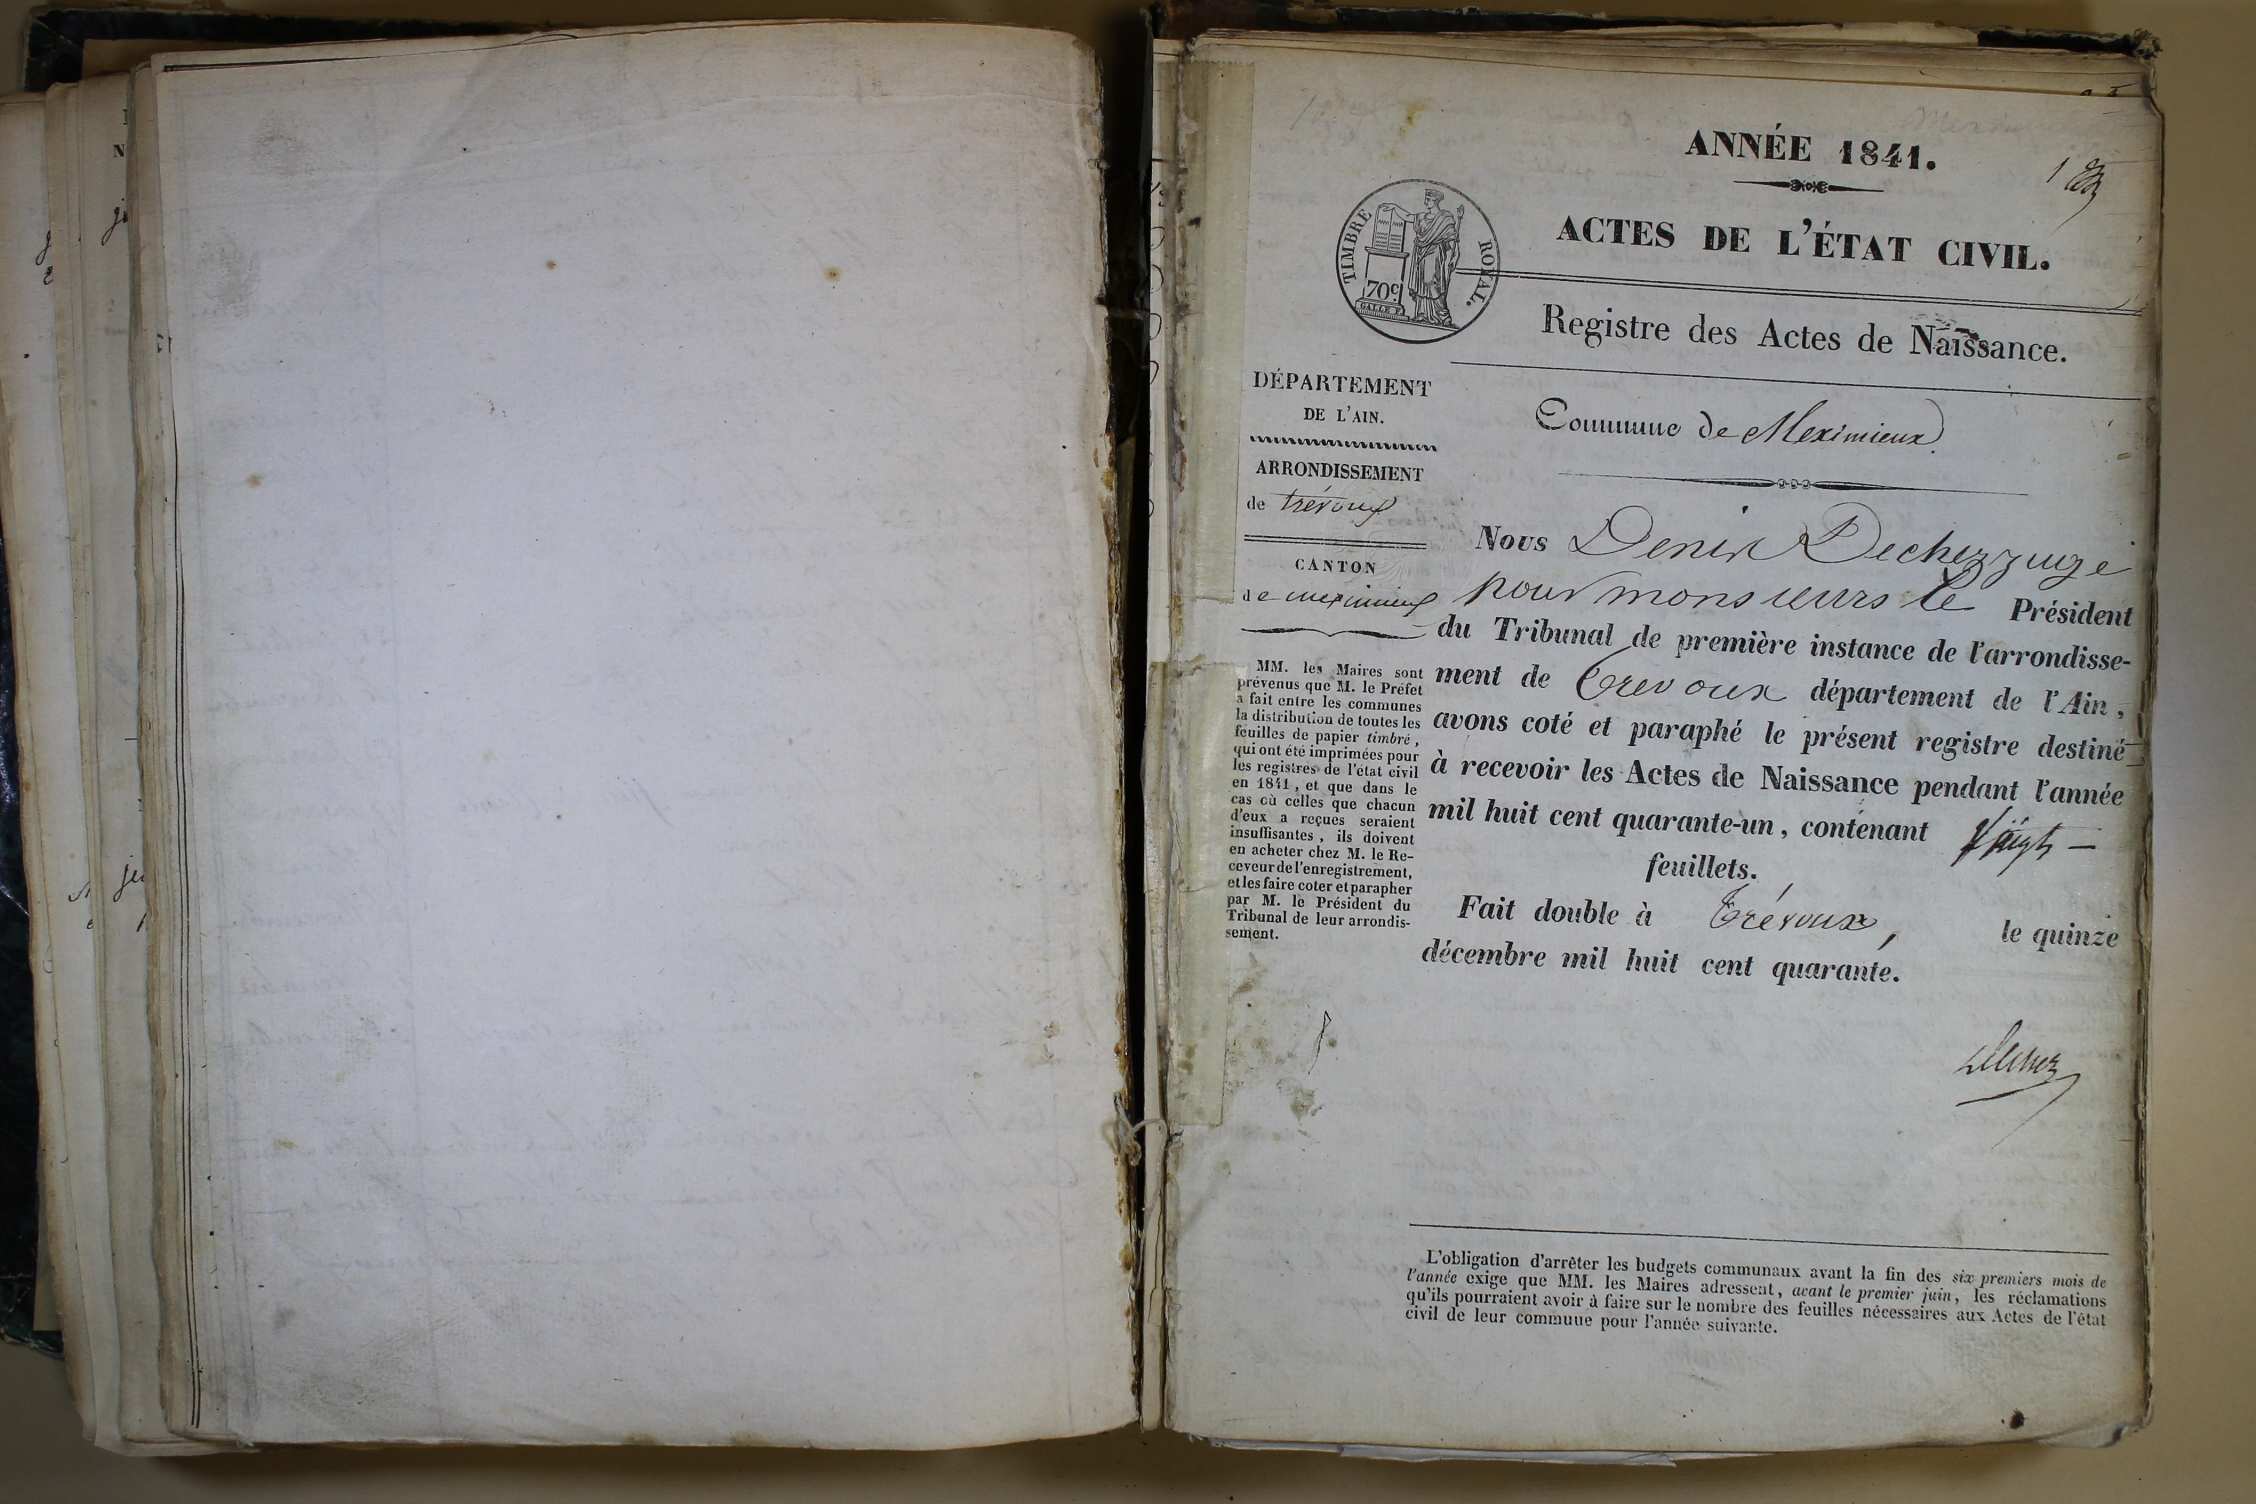 ANNÉE 1841.
1
ACTES DE L'ÉTAT CIVIL.
TIMBRE ROYAL.
70c
Registre des Actes de Naissance.
DÉPARTEMENT
DE L'AIN.
ARRONDISSEMENT
de trévoux
CANTON
de meximieux
MM. les Maires sont
prévenus que M. le Préfet
a fait entre les communes
la distribution de toutes les
feuilles de papier timbré,
qui ont été imprimées pour
les registres de l'état civil
en 1841, et que dans le
cas où celles que chacun
d'eux a reçues seraient
insuffisantes, ils doivent
en acheter chez M. le Re-
ceveur de l'enregistrement,
et les faire coter et parapher
par M. le Président du
Tribunal de leur arrondis-
sement.
Commune de Meximieux
Nous Denis Dechez juge
pour monsieurs le Président
du Tribunal de première instance de l'arrondisse-
ment de Trevoux département de l'Ain,
avons coté et paraphé le présent registre destiné
à recevoir les Actes de Naissance pendant l'année
mil huit cent quarante-un, contenant Vingt
feuillets.
Fait double à Trévoux, le quinze
décembre mil huit cent quarante.
L'obligation d'arrêter les budgets communaux avant la fin des six premiers mois de
l'année exige que MM. les Maires adressent, avant le premier juin, les réclamations
qu'ils pourraient avoir à faire sur le nombre des feuilles nécessaires aux Actes de l'état
civil de leur commune pour l'année suivante.